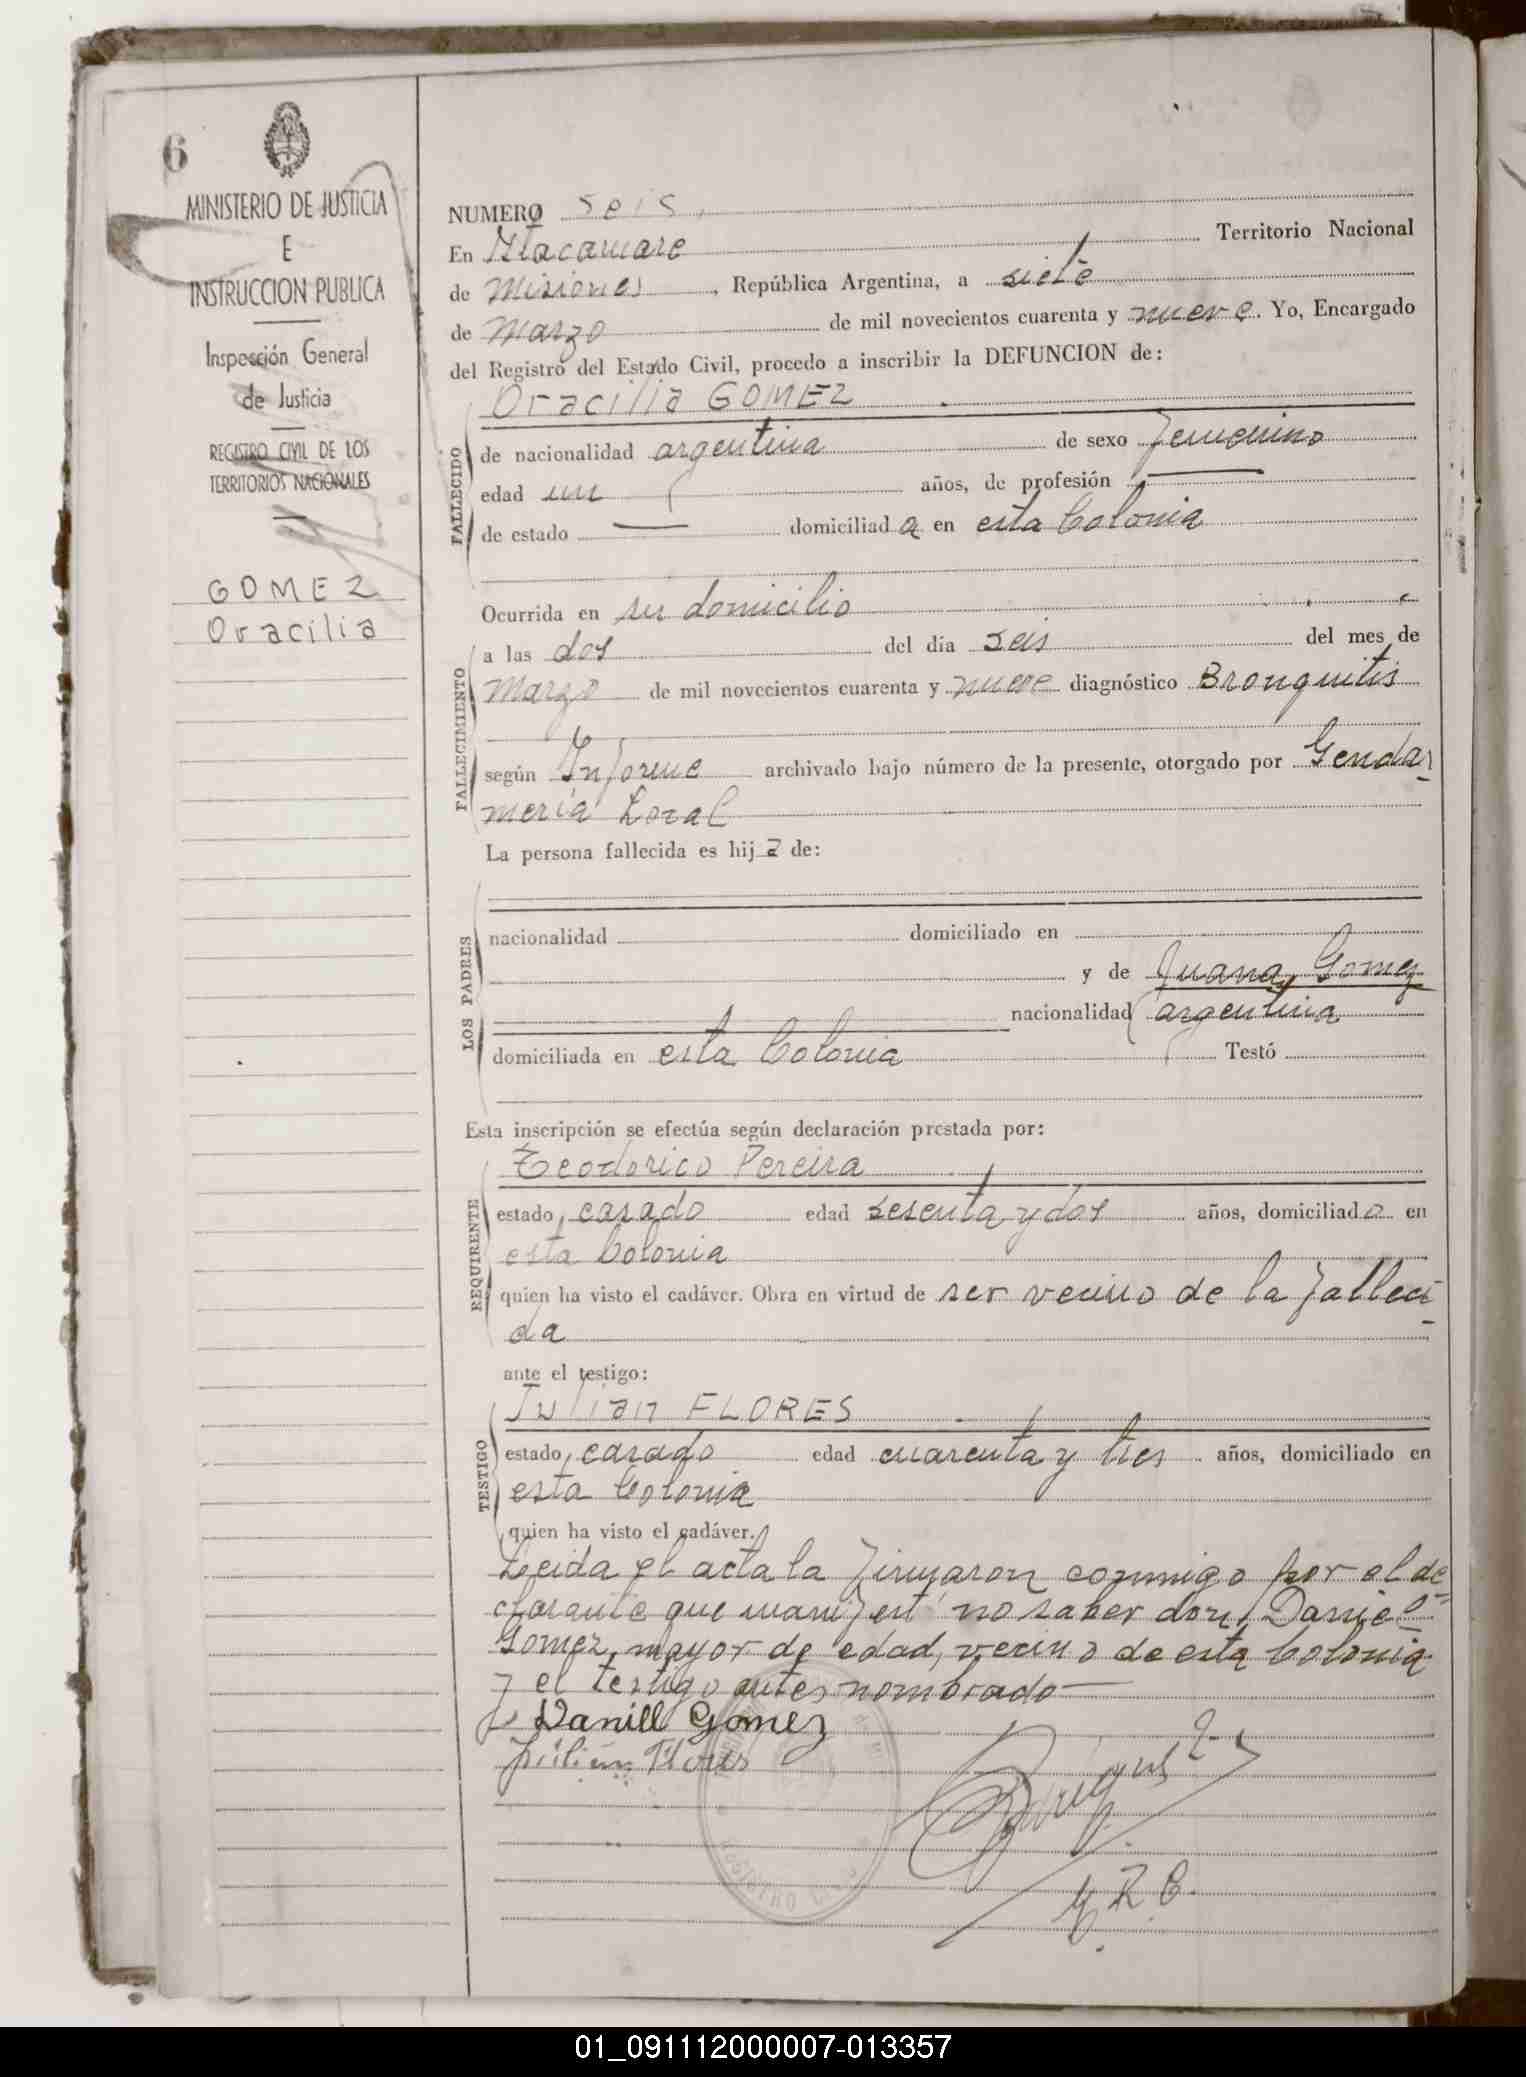 6
MINISTERIO DE JUSTICIA
E
INSTRUCCION PUBLICA
Inspección General
de Justicia
REGISTRO CIVIL DE LOS
TERRITORIOS NACIONALES
GOMEZ
Oracilia
NUMERO seis
En Itacaruare Territorio Nacional
de Misiones, República Argentina, a siete
de Marzo de mil novecientos cuarenta y nueve. Yo, Encargado
del Registro del Estado Civil, procedo a inscribir la DEFUNCION de:
Oracilia GOMEZ
FALLECIDO
de nacionalidad argentina de sexo femenino
edad un años, de profesión —
de estado — domiciliad a en esta Colonia
FALLECIMIENTO
Ocurrida en su domicilio
a las dos del día seis del mes de
Marzo de mil novecientos cuarenta y nueve diagnóstico Bronquitis
según Informe archivado bajo número de la presente, otorgado por Gendar
mería Local
La persona fallecida es hij a de:
LOS PADRES
nacionalidad domiciliado en
y de Juana Gomez
nacionalidad argentina
domiciliada en esta Colonia Testó
Esta inscripción se efectúa según declaración prestada por:
REQUIRENTE
Teodorico Pereira
estado, casado edad sesenta y dos años, domiciliad o en
esta Colonia
quien ha visto el cadáver. Obra en virtud de ser vecino de la falleci
da
ante el testigo:
TESTIGO
Julian FLORES
estado, casado edad cuarenta y tres años, domiciliado en
esta Colonia
quien ha visto el cadáver.
Leida el acta la firmaron conmigo por el de
clarante que manifestó no saber don Daniel
Gomez, mayor de edad, vecino de esta Colonia
y el testigo antes nombrado—
Daniel Gomez
Julian Flores
REGISTRO CIVIL
E.R.C.
01_091112000007-013357